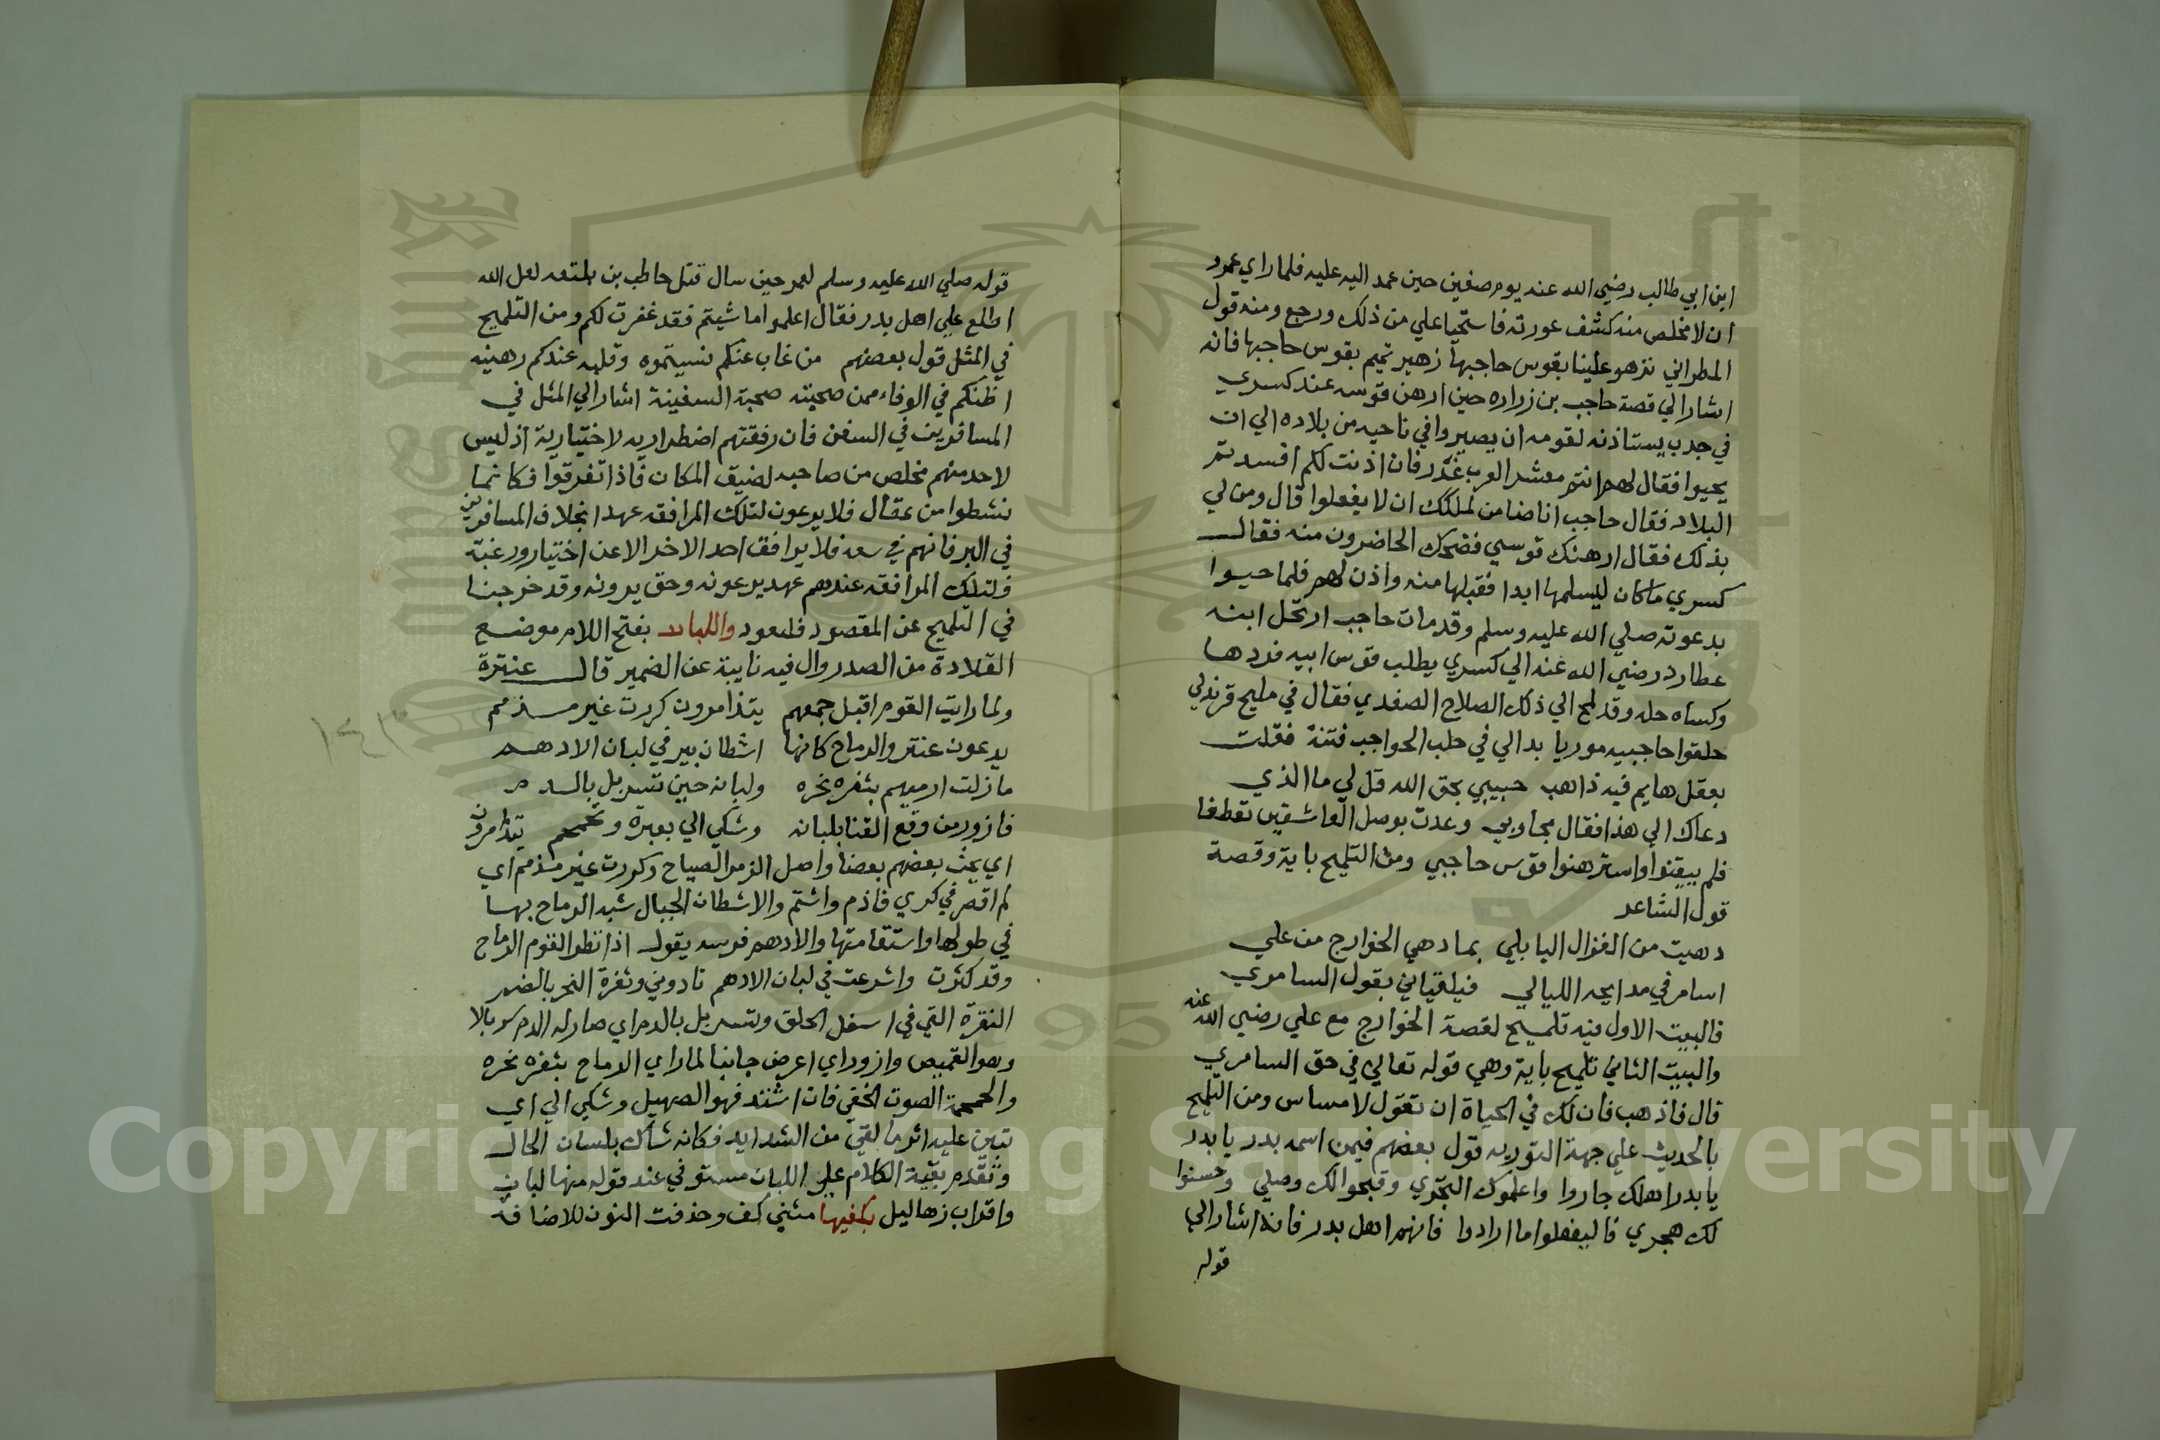 ابن ابي طالب رضي الله عنه يوم صفين حين عمد اليه عليه فلما راي عمرو
ان لا مخلص منه كشف عورته فاستحيا علي من ذلك ورجع ومنه قول
المطراني تزهو علينا بقوس حاجبها زهير تميم بقوس حاجبها فانه
اشار الي قصة حاجب بن زراره حين ارهن قوسه عند كسري
في جدب يستاذنه لقومه ان يصيروا في ناحيه من بلاده الي ان
يحيوا فقال لهم انتم معشر العرب غدر فان اذنت لكم افسدتم
البلاد فقال حاجب انا ضامن لملكك ان لا يفعلوا قال ومن لي
بذلك فقال ارهنك قوسي فضحك الحاضرون منه فقال
كسري ما كان ليسلمها ابدا فقبلها منه واذن لهم فلما حيوا
بدعوته صلي الله عليه وسلم وقد مات حاجب ارتحل ابنه
عطارد رضي الله عنه الي كسري يطلب قوس ابيه فردها
وكساه حله وقد لمح الي ذلك الصلاح الصفدي فقال في مليح قرندلي
حلقوا حاجبيه موريا بدا لي في حلب الحواجب فتنة فقلت
بعقل هايم فيه ذاهب حبيبي بحق الله قل لي ما الذي
دعاك الي هذا فقال مجاوبي وعدت بوصل العاشقين تعطفا
فلم يبيقنوا واسترهنوا قوس حاجبي ومن التلميح باية وقصة
قول الشاعر
دهيت من الغزال البابلي بما دهي الخوارج من علي
اسامر في مدايحه الليالي فيلقياني بقول السامري
فالبيت الاول فيه تلميح لقصة الخوارج مع علي رضي الله عنه
والبيت الثاني تلميح باية وهي قوله تعالي في حق السامري
قال فاذهب فان لك في الحياة ان تقول لا مساس ومن التلميح
بالحديث علي جهة التوريه قول بعضهم فيمن اسمه بدر يا بدر
يا بدر اهلك جاروا واعلموك التجري وقبحوا لك وصلي وحسنوا
لك هجري فاليفعلوا ما ارادوا فانهم اهل بدر فانه اشار الي
قوله
قوله صلي الله عليه وسلم لعمر حين سال قتل حاطب بن بلتعه لعل الله
اطلع علي اهل بدر فقال اعلموا ما شيتم فقد غفرت لكم ومن التلميح
في المثل قول بعضهم من غاب عنكم نسيتموه وقلبه عندكم رهينه
اظنكم في الوفاء ممن صحبته صحبة السفينة اشار الي المثل في
المسافرين في السفن فان رفقتهم اضطراريه لا ختيارية اذ ليس
لاحد منهم مخلص من صاحبه لضيق المكان فاذا تفرقوا فكانما
نشطوا من عقال فلا يرعون لتلك المرافقه عهدا بخلاف المسافرين
في البر فانهم في سعه فلا يوافق احد الاخر الا عن اختيار ورغبة
فلتلك المرافقه عندهم عهد يرعونه وحق يرونه وقد خرجنا
في التلميح عن المقصود فلنعود واللبان بفتح اللام موضع
القلادة من الصدر وال فيه نايبة عن الضمير قال عنترة
ولما رايت القوم اقبل جمعهم يتذامرون كررت غير مذمم
يدعون عنتر والرماح كانها اشطان بير في لبان الادهم
ما زلت ارميهم بثغره نحره ولبانه حين تسربل بالدم
فازور من وقع القنا بلبانه وشكي الي بعبرة وتحمحم يتذامرون
اي يحث بعضهم بعضا واصل الزمر الصياح وكررت غير مذمم اي
لم اقصر في كري فاذم واشتم والاشطان الحبال شبه الرماح بها
في طولها واستقامتها والادهم فرسه يقول اذا نظر القوم الرماح
وقد كثرت واشرعت في لبان الادهم نادوني وثغرة النحر بالضم
النقرة التي في اسفل الحلق وتسربل بالدم اي صار له الدم سربالا
وهو القميص وازور اي اعرض جانبا لما راي الرماح بثغره نحره
والحمحمة الصوت الخفي فان اشتد فهو الصهيل وشكي الي اي
تبين عليه اثر ما لقي من الشدايد فكانه شاك بلسان الحال
وتقدم بقية الكلام علي اللبان مستوفي عند قوله منها لبان
واقراب زهاليل بكفيها مثني كف وحذفت النون للاضافة
Copyright © King Saud University